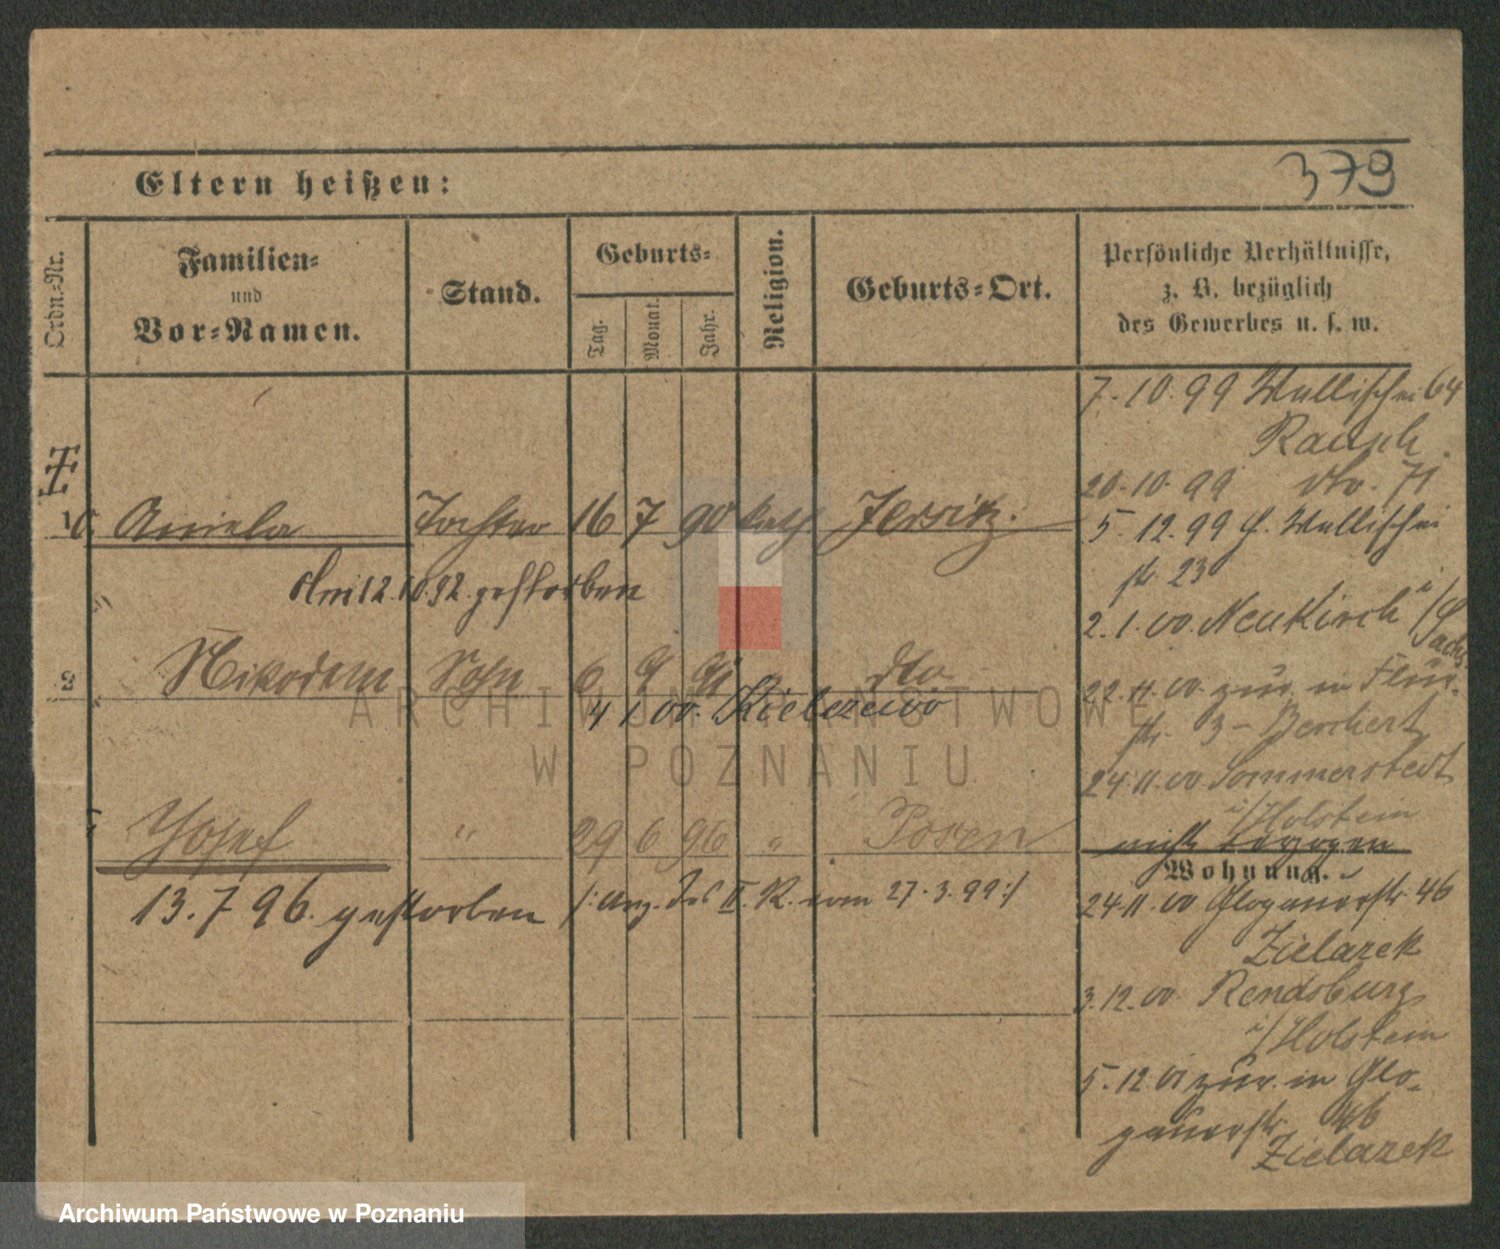 379
Eltern heißen:
Ordn.-Nr.
Familien-
und
Vor-Namen.
Stand.
Geburts-
Tag.
Monat.
Jahr.
Religion.
Geburts-Ort.
Persönliche Verhältnisse,
z. B. bezüglich
des Gewerbes u. s. w.
7.10.99 Wallischei 64
Rausch
20.10.99 dto. 71
1 Aniela Tochter 16 7 90 kath. Jersitz.
5.12.99 Wallischei
str 23
Am 12.10.92. gestorben
2.1.00. Neukirch i/
Sachs
2 Nikodem Sohn 6 9 dto
22.11.00 zur. in
str. 3
4 1 00. Kielczewo
24.11.00 Sommerstedt
i/Holstein
Josef " 29 6 96 " Posen
nicht bezogen
Wohnung.
13.7.96. gestorben /: Anz. des II. R. vom 27.3.99 :/
24.11.00 Glogauerstr. 46
Zielazek
3.12.00 Rendsburg
i/Holstein
5.12.01 zur. in Glo-
gauerstr. 46
Zielazek
ARCHIWUM PAŃSTWOWE
W POZNANIU
Archiwum Państwowe w Poznaniu